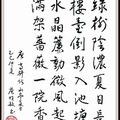 綠樹陰濃夏日長
樓臺倒影入池塘
水晶簾動微風起
滿架薔薇一院香